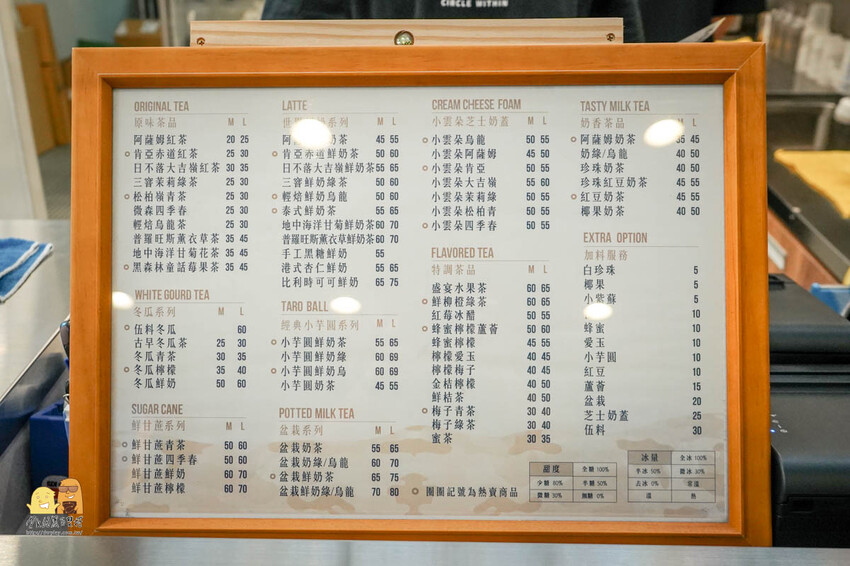 CIRCLE WITHIN
ORIGINAL TEA
原味茶品 M L
阿薩姆紅茶 20 25
肯亞赤道紅茶 25 30
日不落大吉嶺紅茶 30 35
三窨茉莉綠茶 25 30
松柏嶺青茶 25 30
微森四季春 25 30
輕焙烏龍茶 25 30
普羅旺斯薰衣草茶 35 45
地中海洋甘菊花茶 35 45
黑森林童話莓果茶 35 45
WHITE GOURD TEA
冬瓜系列 M L
伍料冬瓜 60
古早冬瓜茶 25 30
冬瓜青茶 30 35
冬瓜檸檬 35 40
冬瓜鮮奶 50 60
SUGAR CANE
鮮甘蔗系列 M L
鮮甘蔗青茶 50 60
鮮甘蔗四季春 50 60
鮮甘蔗鮮奶 60 70
鮮甘蔗檸檬 60 70
LATTE
系列 M L
奶茶 45 55
肯亞赤道鮮奶茶 50 60
日不落大吉嶺鮮奶茶 55 65
三窨鮮奶綠茶 50 60
輕焙鮮奶烏龍 50 60
泰式鮮奶茶 55 65
地中海洋甘菊鮮奶茶 60 70
普羅旺斯薰衣草鮮奶茶 60 70
手工黑糖鮮奶 55
港式杏仁鮮奶 55 65
比利時可可鮮奶 65 75
TARO BALL
經典小芋圓系列 M L
小芋圓鮮奶茶 55 65
小芋圓鮮奶綠 60 69
小芋圓鮮奶烏 60 69
小芋圓奶茶 45 55
POTTED MILK TEA
盆栽系列 M L
盆栽奶茶 55 65
盆栽奶綠/烏龍 60 70
盆栽鮮奶茶 65 75
盆栽鮮奶綠/烏龍 70 80
CREAM CHEESE FOAM
小雲朵芝士奶蓋 M L
小雲朵烏龍 50 55
小雲朵阿薩姆 45 55
小雲朵肯亞 50 55
小雲朵大吉嶺 55 60
小雲朵茉莉綠 50 55
小雲朵松柏青 50 55
小雲朵四季春 50 55
FLAVORED TEA
特調茶品 M L
盛宴水果茶 60 65
鮮柳橙綠茶 60 65
紅莓冰醋 50 55
蜂蜜檸檬蘆薈 50 60
蜂蜜檸檬 45 55
檸檬愛玉 40 45
檸檬梅子 40 45
金桔檸檬 40 50
鮮桔茶 40 50
梅子青茶 30 40
梅子綠茶 30 40
蜜茶 30 35
圈圈記號為熱賣商品
TASTY MILK TEA
奶香茶品 M L
阿薩姆奶茶 45
奶綠/烏龍 40 50
珍珠奶茶 40 50
珍珠紅豆奶茶 45 55
紅豆奶茶 45 55
椰果奶茶 40 50
EXTRA OPTION
加料服務
白珍珠 5
椰果 5
小紫蘇 5
10
蜂蜜 10
愛玉 10
小芋圓 10
紅豆 10
蘆薈 15
盆栽 20
芝士奶蓋 25
伍料 30
甜度 全糖 100%
少糖 80% 半糖 50%
微糖 30% 無糖 0%
冰量 全冰 100%
半冰 50% 微冰 30%
去冰 0% 常溫
溫 熱